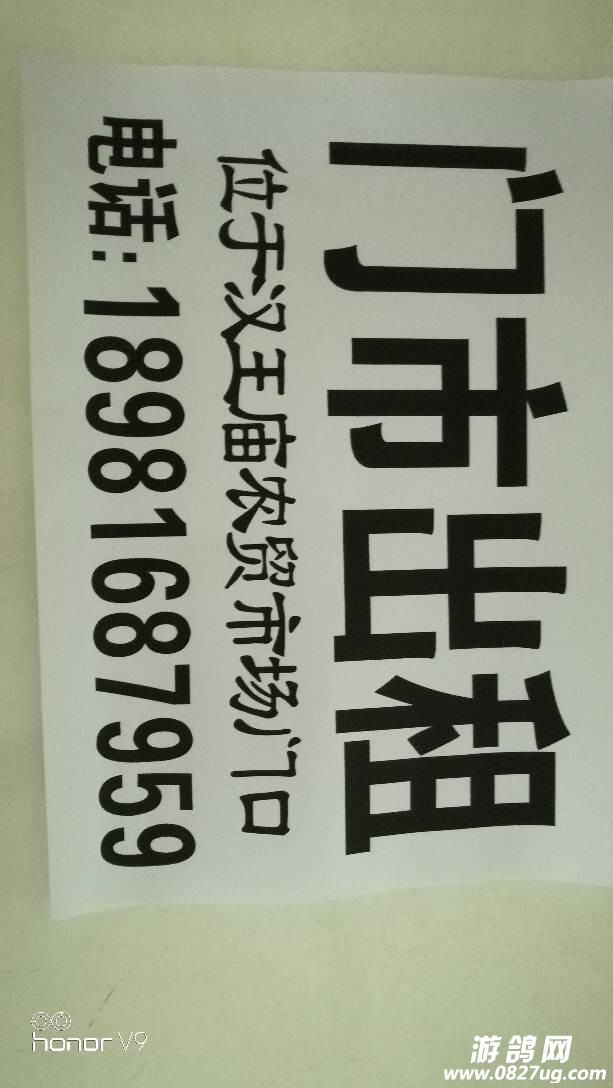 门市出租
位于汉王庙农贸市场门口
电话:18981687959
honor V9
游鸽网
www.0827ug.com